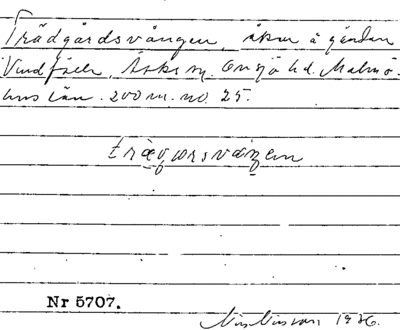 Trädgårdsvången, åker å gården
Vindfäll, Asks sn. Onsjö hd. Malmö-
hus län. 200 m. no. 25.
trägorsvången
Nr 5707.
Nils Nilsson 1926.